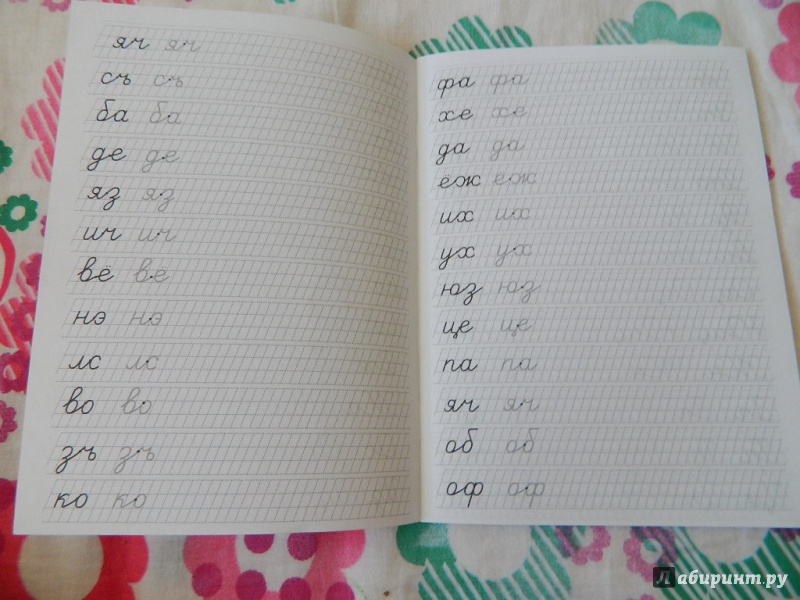 яч яч
съ съ
ба ба
де де
яз яз
ич ич
вё ве
нэ нэ
лс лс
во во
зъ зъ
ко ко
фа фа
хе хе
да да
ёж еж
их их
ух ух
юз юз
це це
па па
яч яч
об об
оф оф
Лабиринт.ру